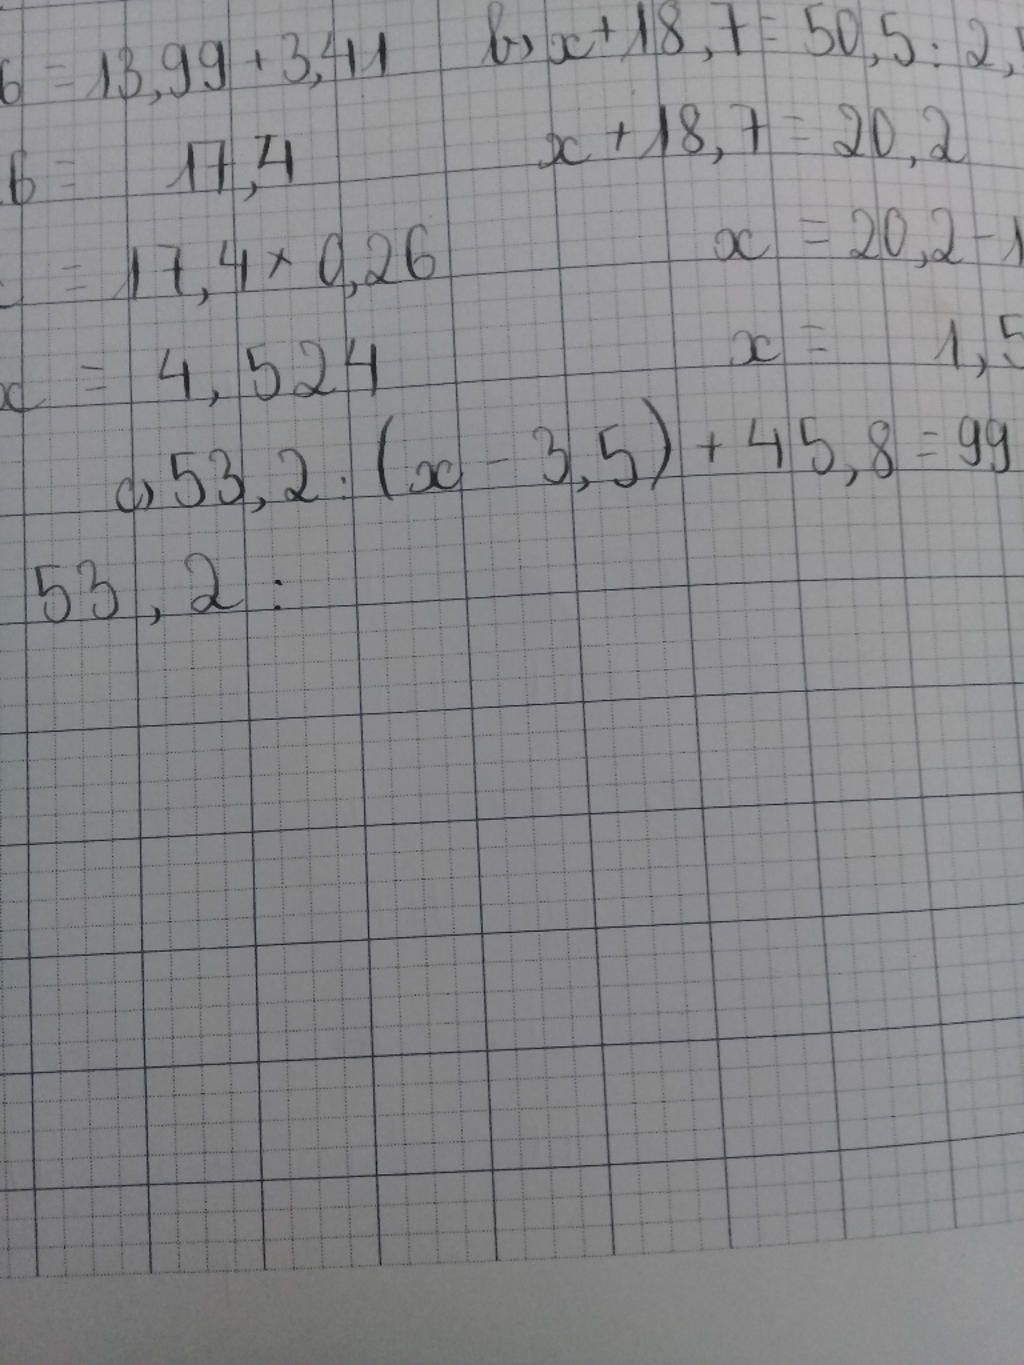 6 = 13,99 + 3,411 b, x + 18,7 = 50,5 : 2,
6 = 17,4 x + 18,7 = 20,2
= 17,4 x 0,26 x = 20,2 - 1
x = 4,524 x = 1,5
c, 53,2 : (x - 3,5) + 45,8 = 99
53,2 :